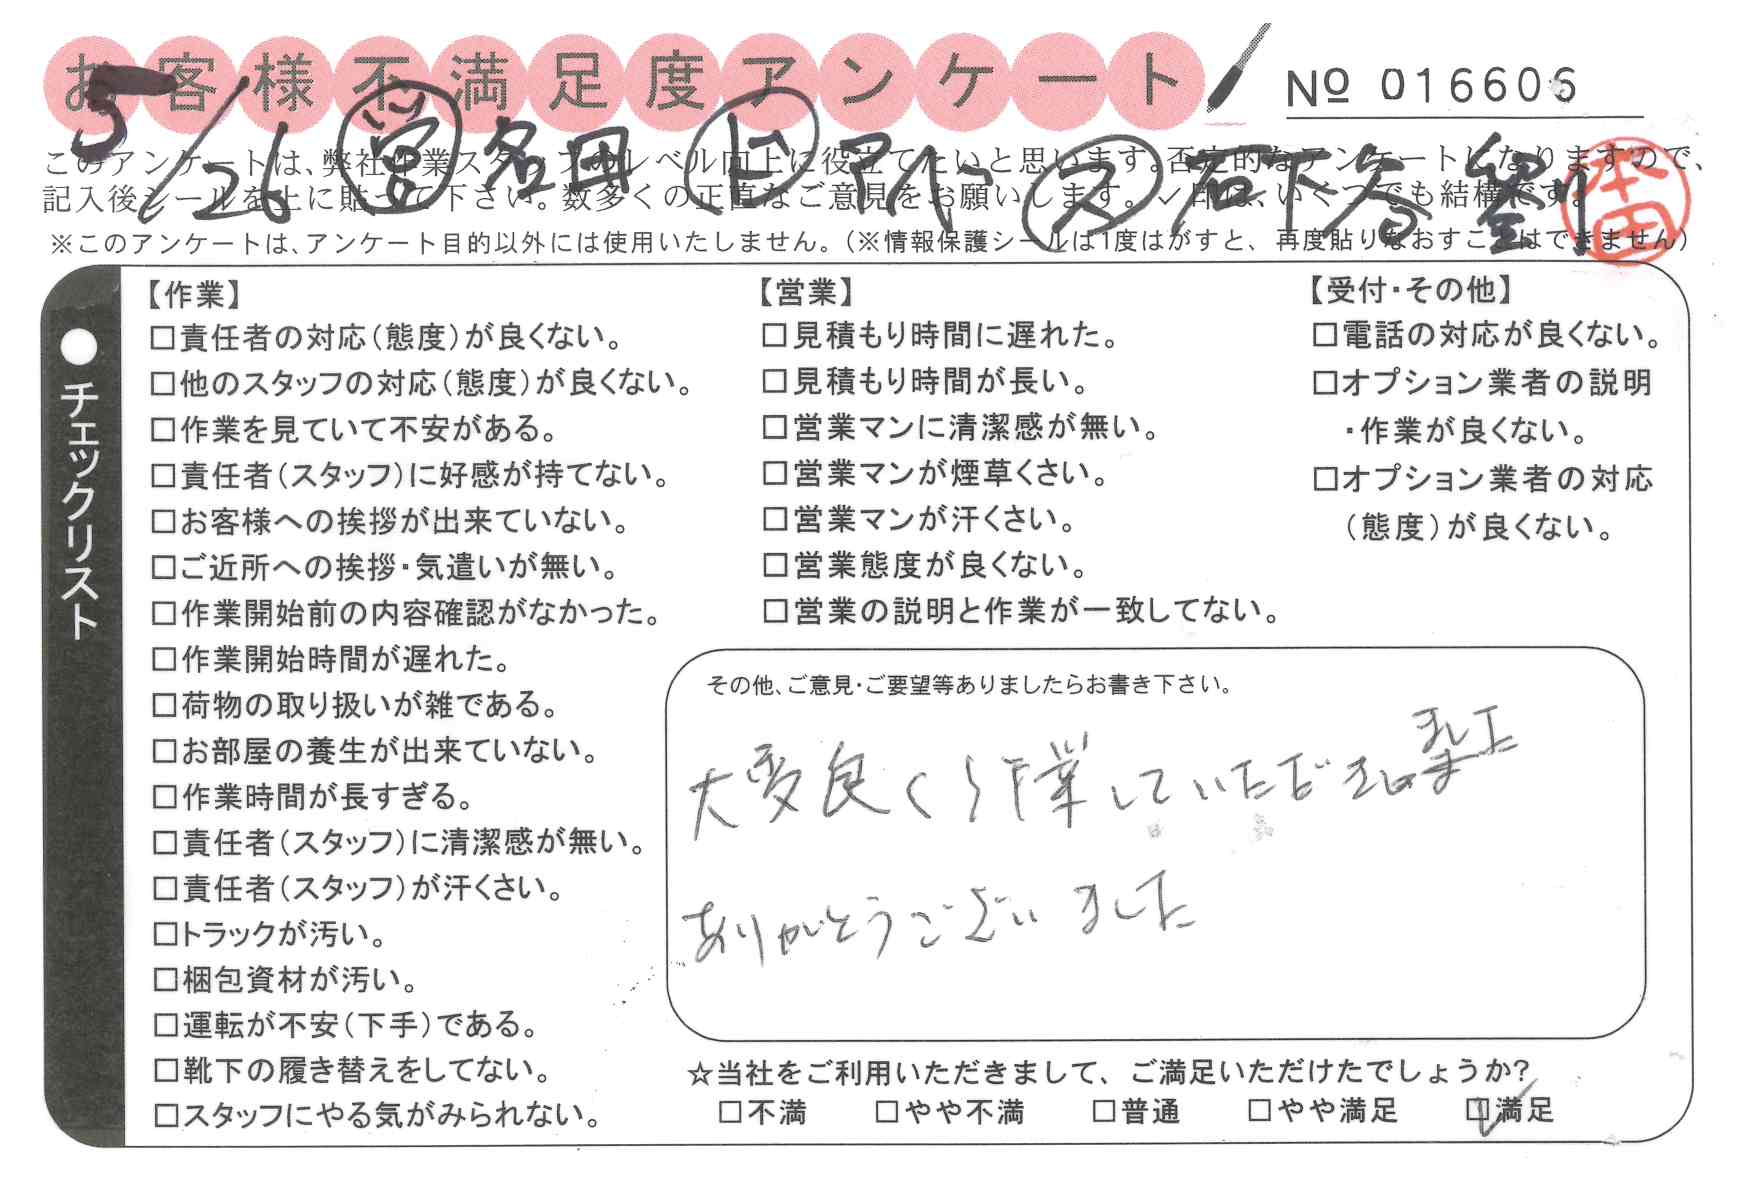 お客様不満足度アンケート
№ 016606
5/26 営 名田 ヒ 石下谷 劉
本田
このアンケートは、弊社作業スタッフのレベル向上に役立てたいと思います。否定的なアンケートになりますので、
記入後シールを上に貼って下さい。数多くの正直なご意見をお願いします。✓印は、いくつでも結構です。
※このアンケートは、アンケート目的以外には使用いたしません。(※情報保護シールは1度はがすと、再度貼りなおすことはできません)
●チェックリスト
【作業】
□責任者の対応(態度)が良くない。
□他のスタッフの対応(態度)が良くない。
□作業を見ていて不安がある。
□責任者(スタッフ)に好感が持てない。
□お客様への挨拶が出来ていない。
□ご近所への挨拶・気遣いが無い。
□作業開始前の内容確認がなかった。
□作業開始時間が遅れた。
□荷物の取り扱いが雑である。
□お部屋の養生が出来ていない。
□作業時間が長すぎる。
□責任者(スタッフ)に清潔感が無い。
□責任者(スタッフ)が汗くさい。
□トラックが汚い。
□梱包資材が汚い。
□運転が不安(下手)である。
□靴下の履き替えをしてない。
□スタッフにやる気がみられない。
【営業】
□見積もり時間に遅れた。
□見積もり時間が長い。
□営業マンに清潔感が無い。
□営業マンが煙草くさい。
□営業マンが汗くさい。
□営業態度が良くない。
□営業の説明と作業が一致してない。
【受付・その他】
□電話の対応が良くない。
□オプション業者の説明
・作業が良くない。
□オプション業者の対応
(態度)が良くない。
その他、ご意見・ご要望等ありましたらお書き下さい。
大変良く作業していただきました
ありがとうございました
☆当社をご利用いただきまして、ご満足いただけたでしょうか?
□不満 □やや不満 □普通 □やや満足 ☑満足